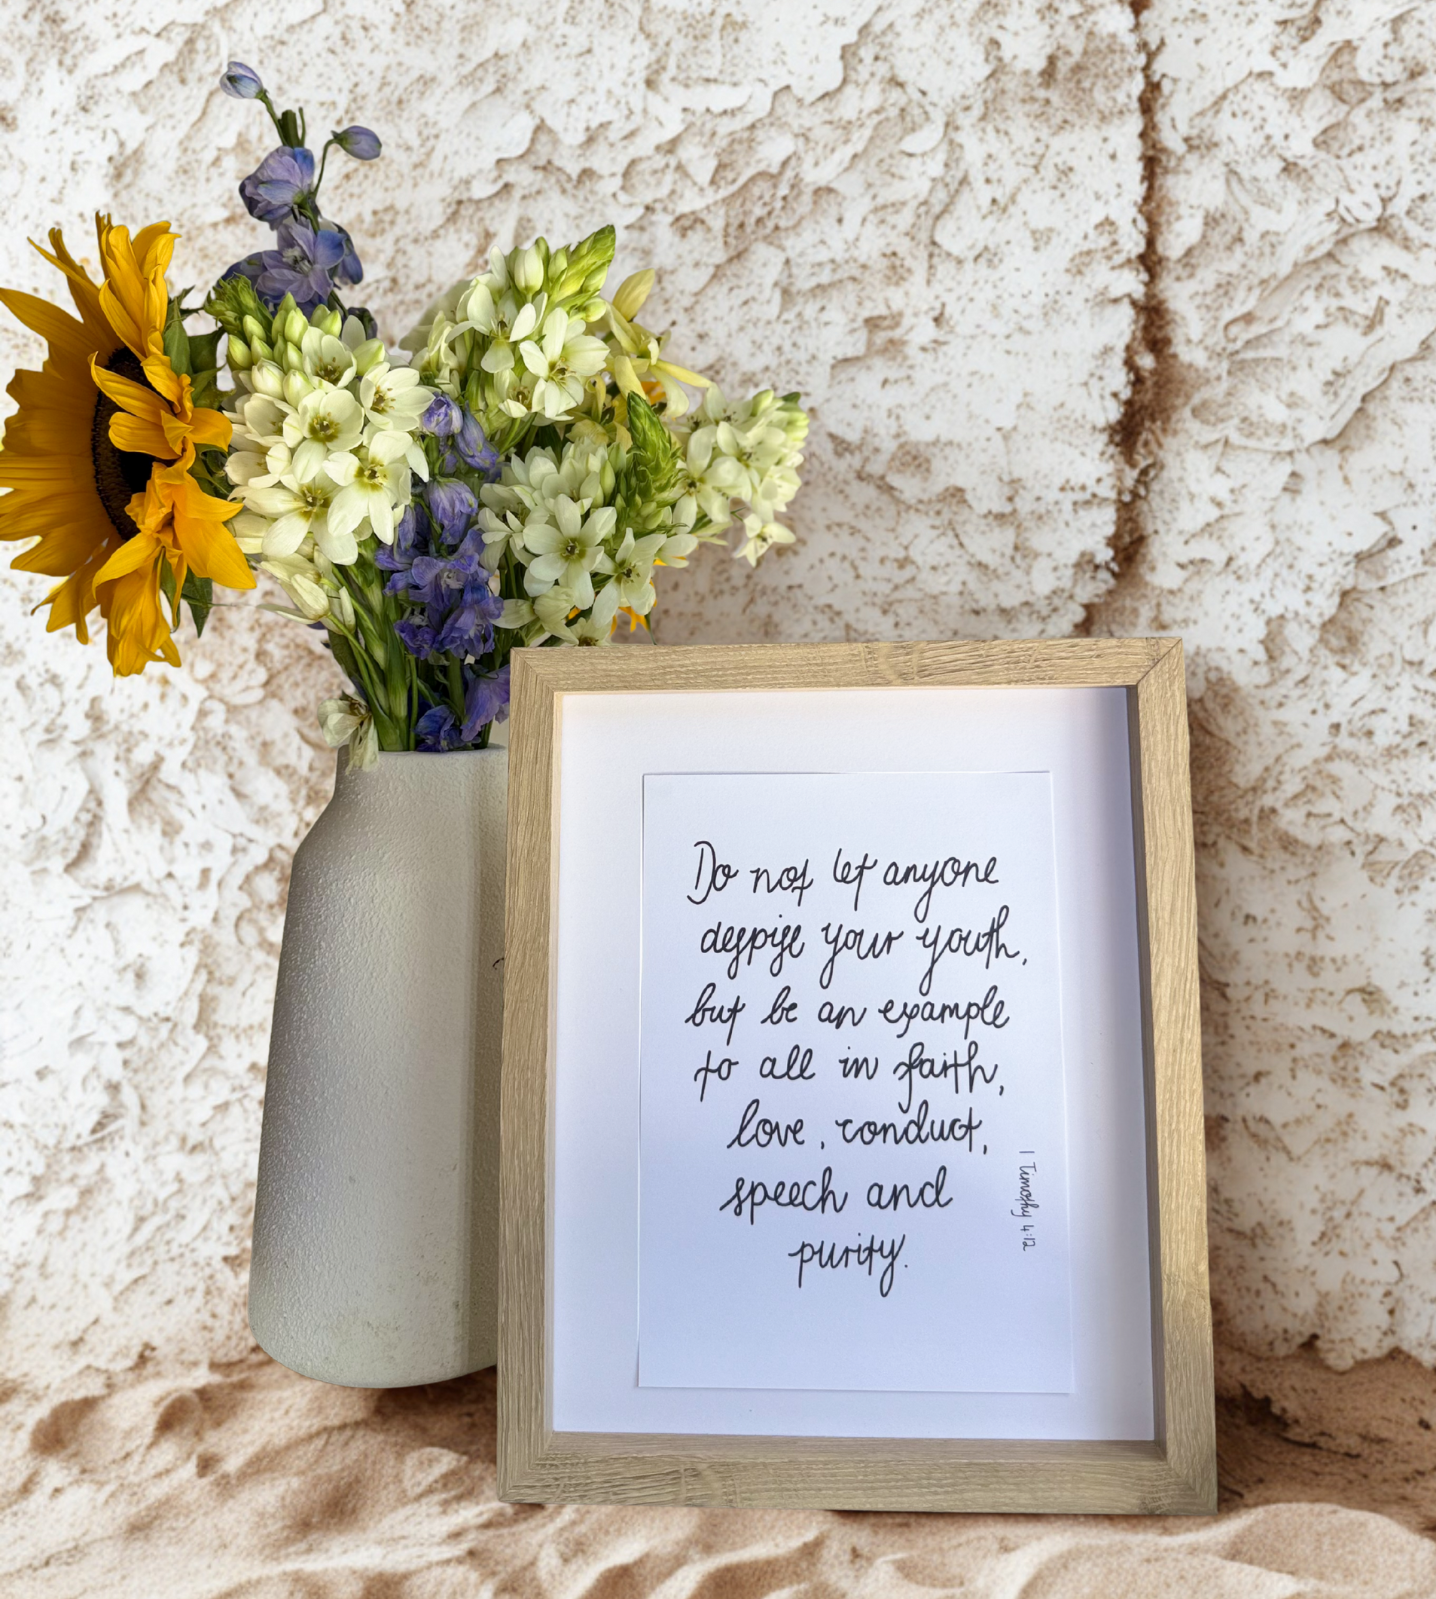 Do not let anyone
despise your youth,
but be an example
to all in faith,
love, conduct,
speech and
purity.
1 Timothy 4:12